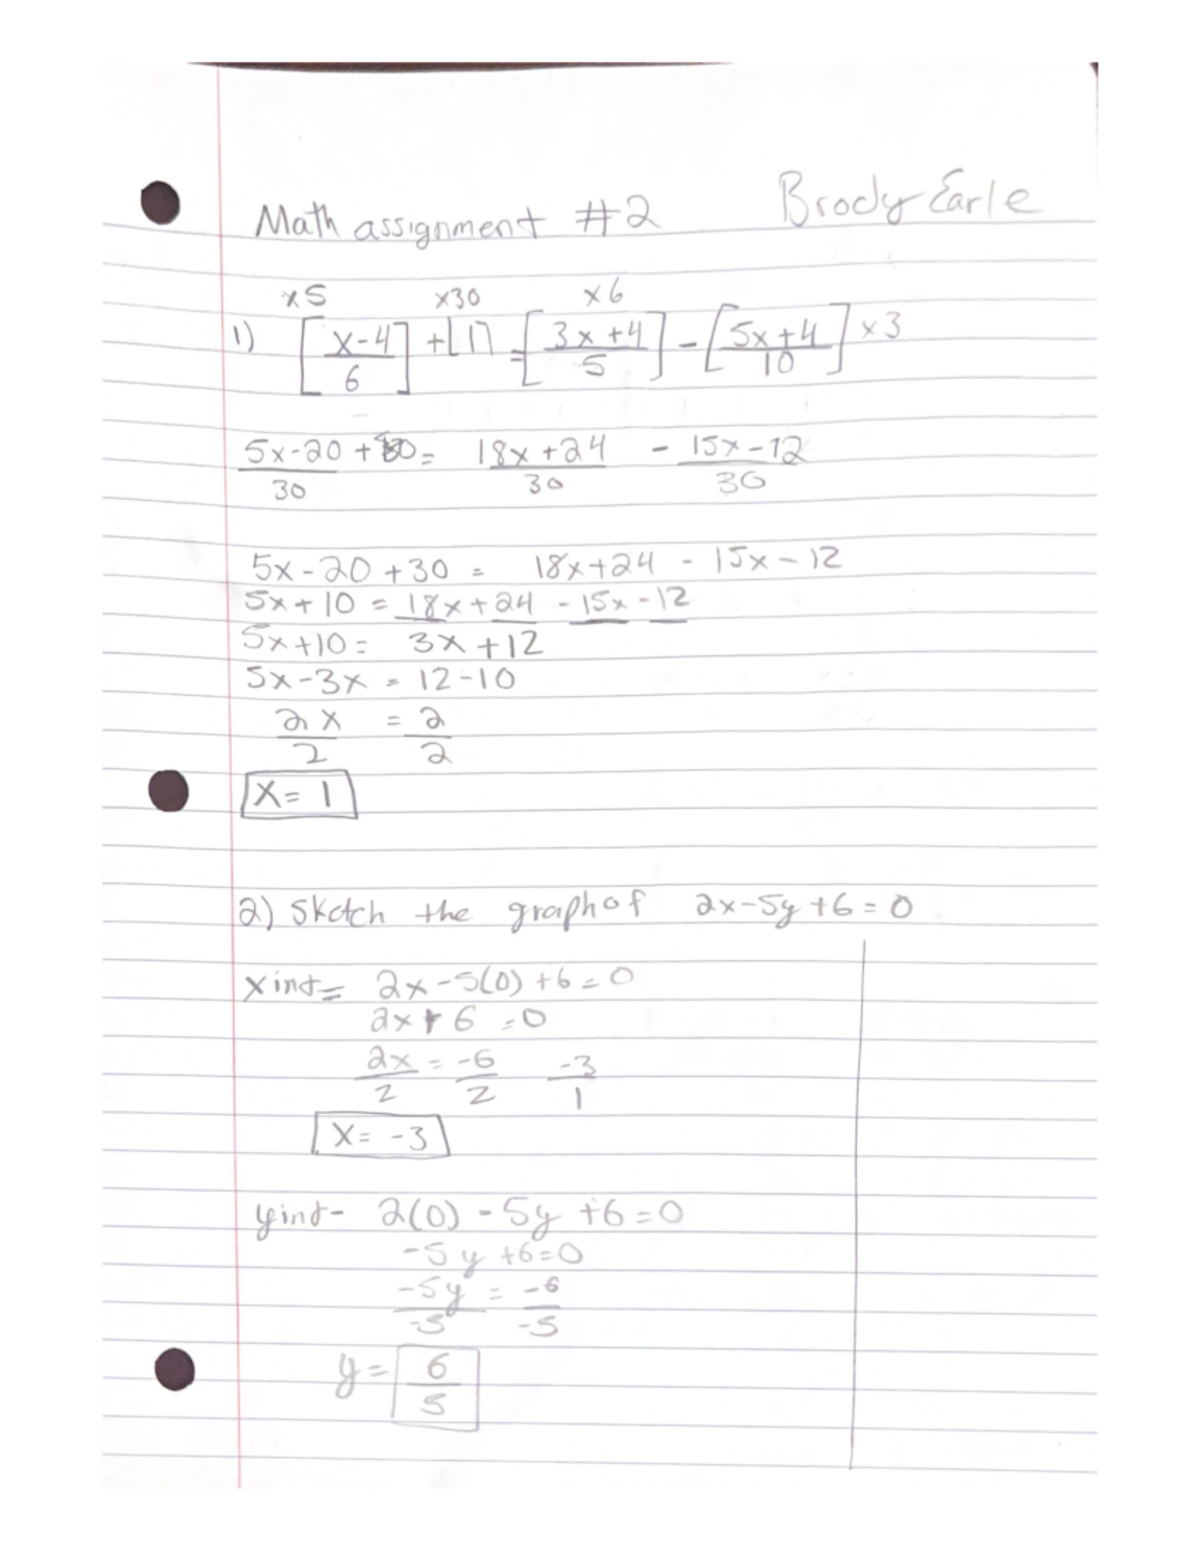 Math assignment #2 Brody Earle
x5 x30 x6
1) [x-4/6] + [1] = [3x+4/5] - [5x+4/10] x3
5x-20/30 + 30 = 18x+24/30 - 15x-12/30
5x-20+30 = 18x+24 - 15x-12
5x+10 = 18x+24 - 15x-12
5x+10 = 3x+12
5x-3x = 12-10
2x/2 = 2/2
x= 1
2) Sketch the graph of 2x-5y+6=0
x int= 2x-5(0)+6=0
2x+6=0
2x/2 = -6/2 -3/1
x= -3
y int- 2(0)-5y+6=0
-5y+6=0
-5y/-5 = -6/-5
y= 6/5